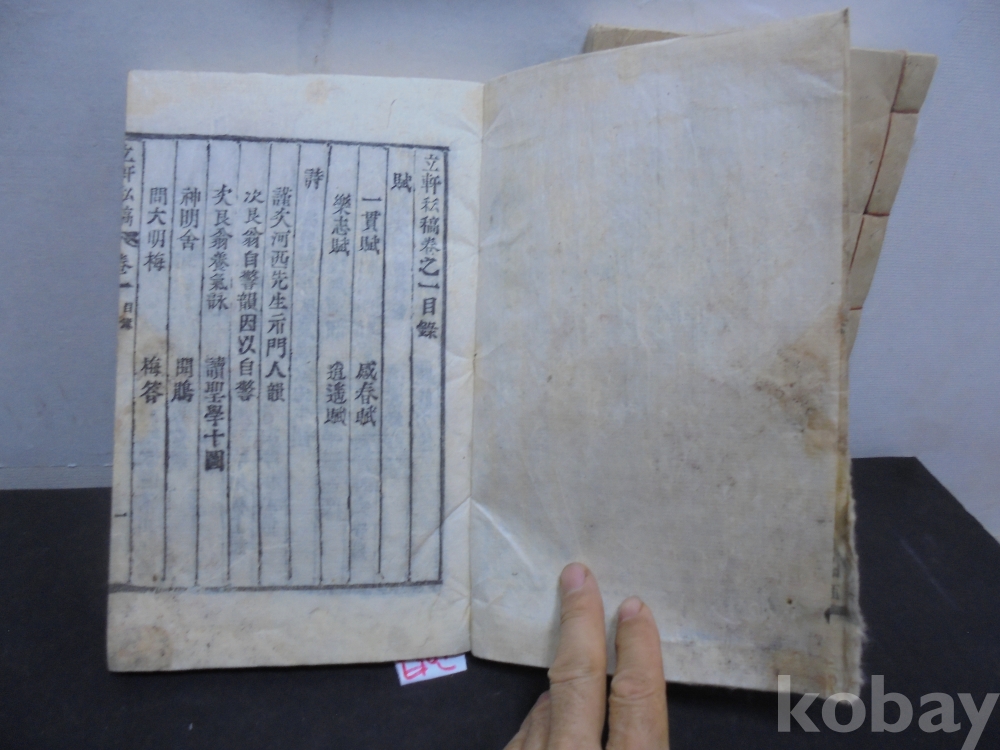 立軒私稿卷之一目錄
賦
一貫賦 感春賦
樂志賦 逍遙賦
詩
謹次河西先生示門人韻
次艮翁自警韻因以自警
次艮翁養氣詠 讀聖學十圖
神明舍 聞鵑
問大明梅 梅答
立軒私稿 卷一 目錄 一
kobay